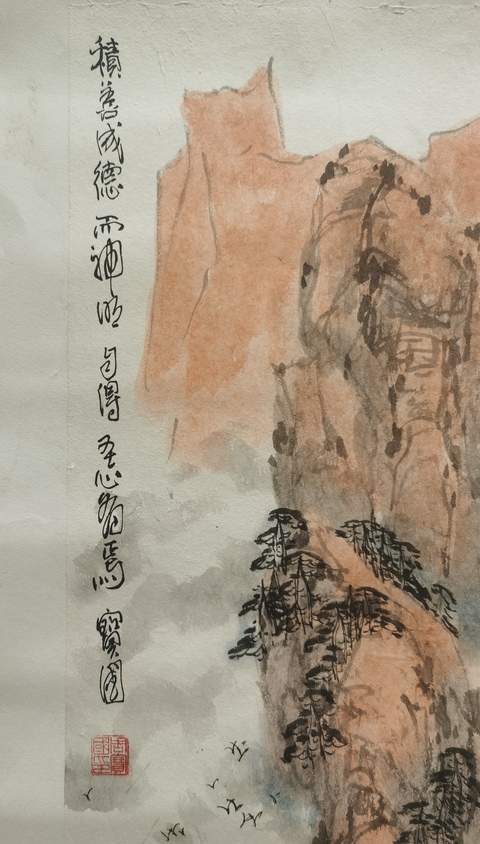 積善成德而神明自得圣心备焉寶